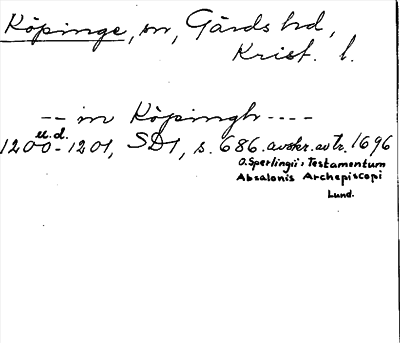 Köpinge, sn, Gärds hd,
Krist. l.
-- in Köpingh ----
u.d.
1200-1201, SD1, s. 686. avskr. av tr. 1696
O. Sperlingii, Testamentum
Absalonis Archepiscopi
Lund.